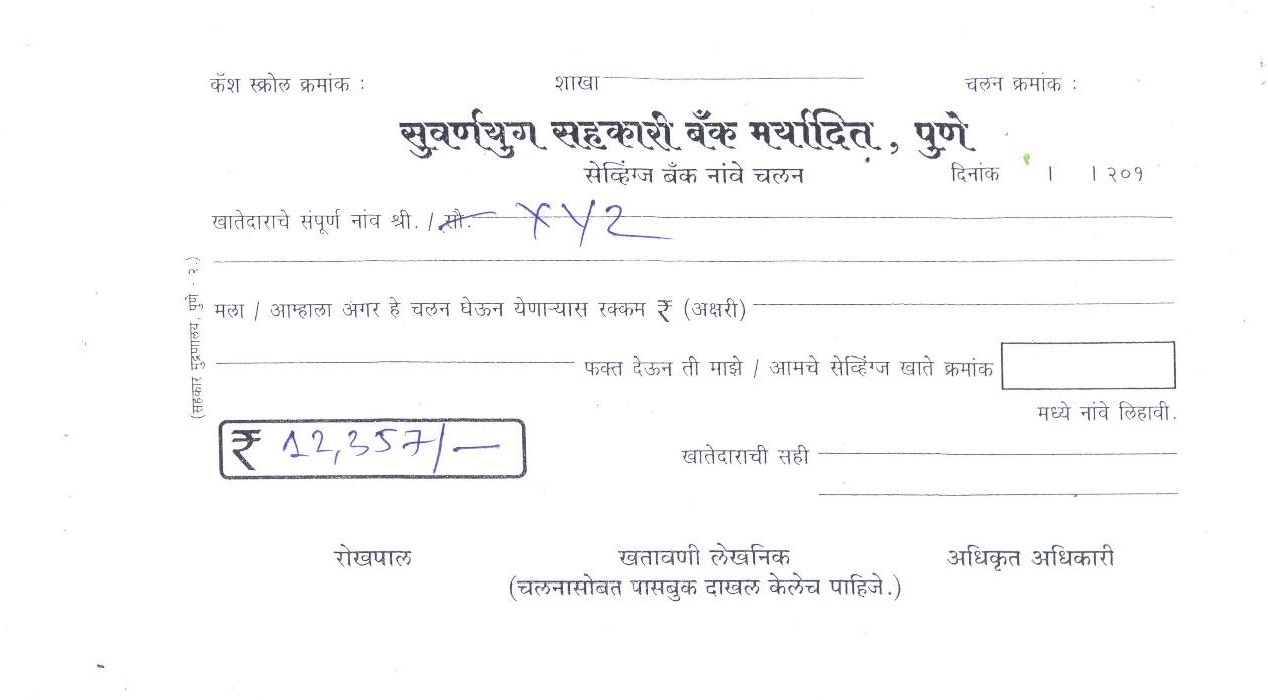 कॅश स्क्रोल क्रमांक : शाखा चलन क्रमांक :
सुवर्णयुग सहकारी बँक मर्यादित, पुणे
सेव्हिंग्ज बँक नांवे चलन दिनांक । । २०१
खातेदाराचे संपूर्ण नांव श्री. / सौ. XYZ
मला / आम्हाला अगर हे चलन घेऊन येणाऱ्यास रक्कम ₹ (अक्षरी)
फक्त देऊन ती माझे / आमचे सेव्हिंग्ज खाते क्रमांक
मध्ये नांवे लिहावी.
₹ 12,357/—
खातेदाराची सही
रोखपाल खतावणी लेखनिक अधिकृत अधिकारी
(चलनासोबत पासबुक दाखल केलेच पाहिजे.)
(सहकार मुद्रणालय, पुणे - २.)